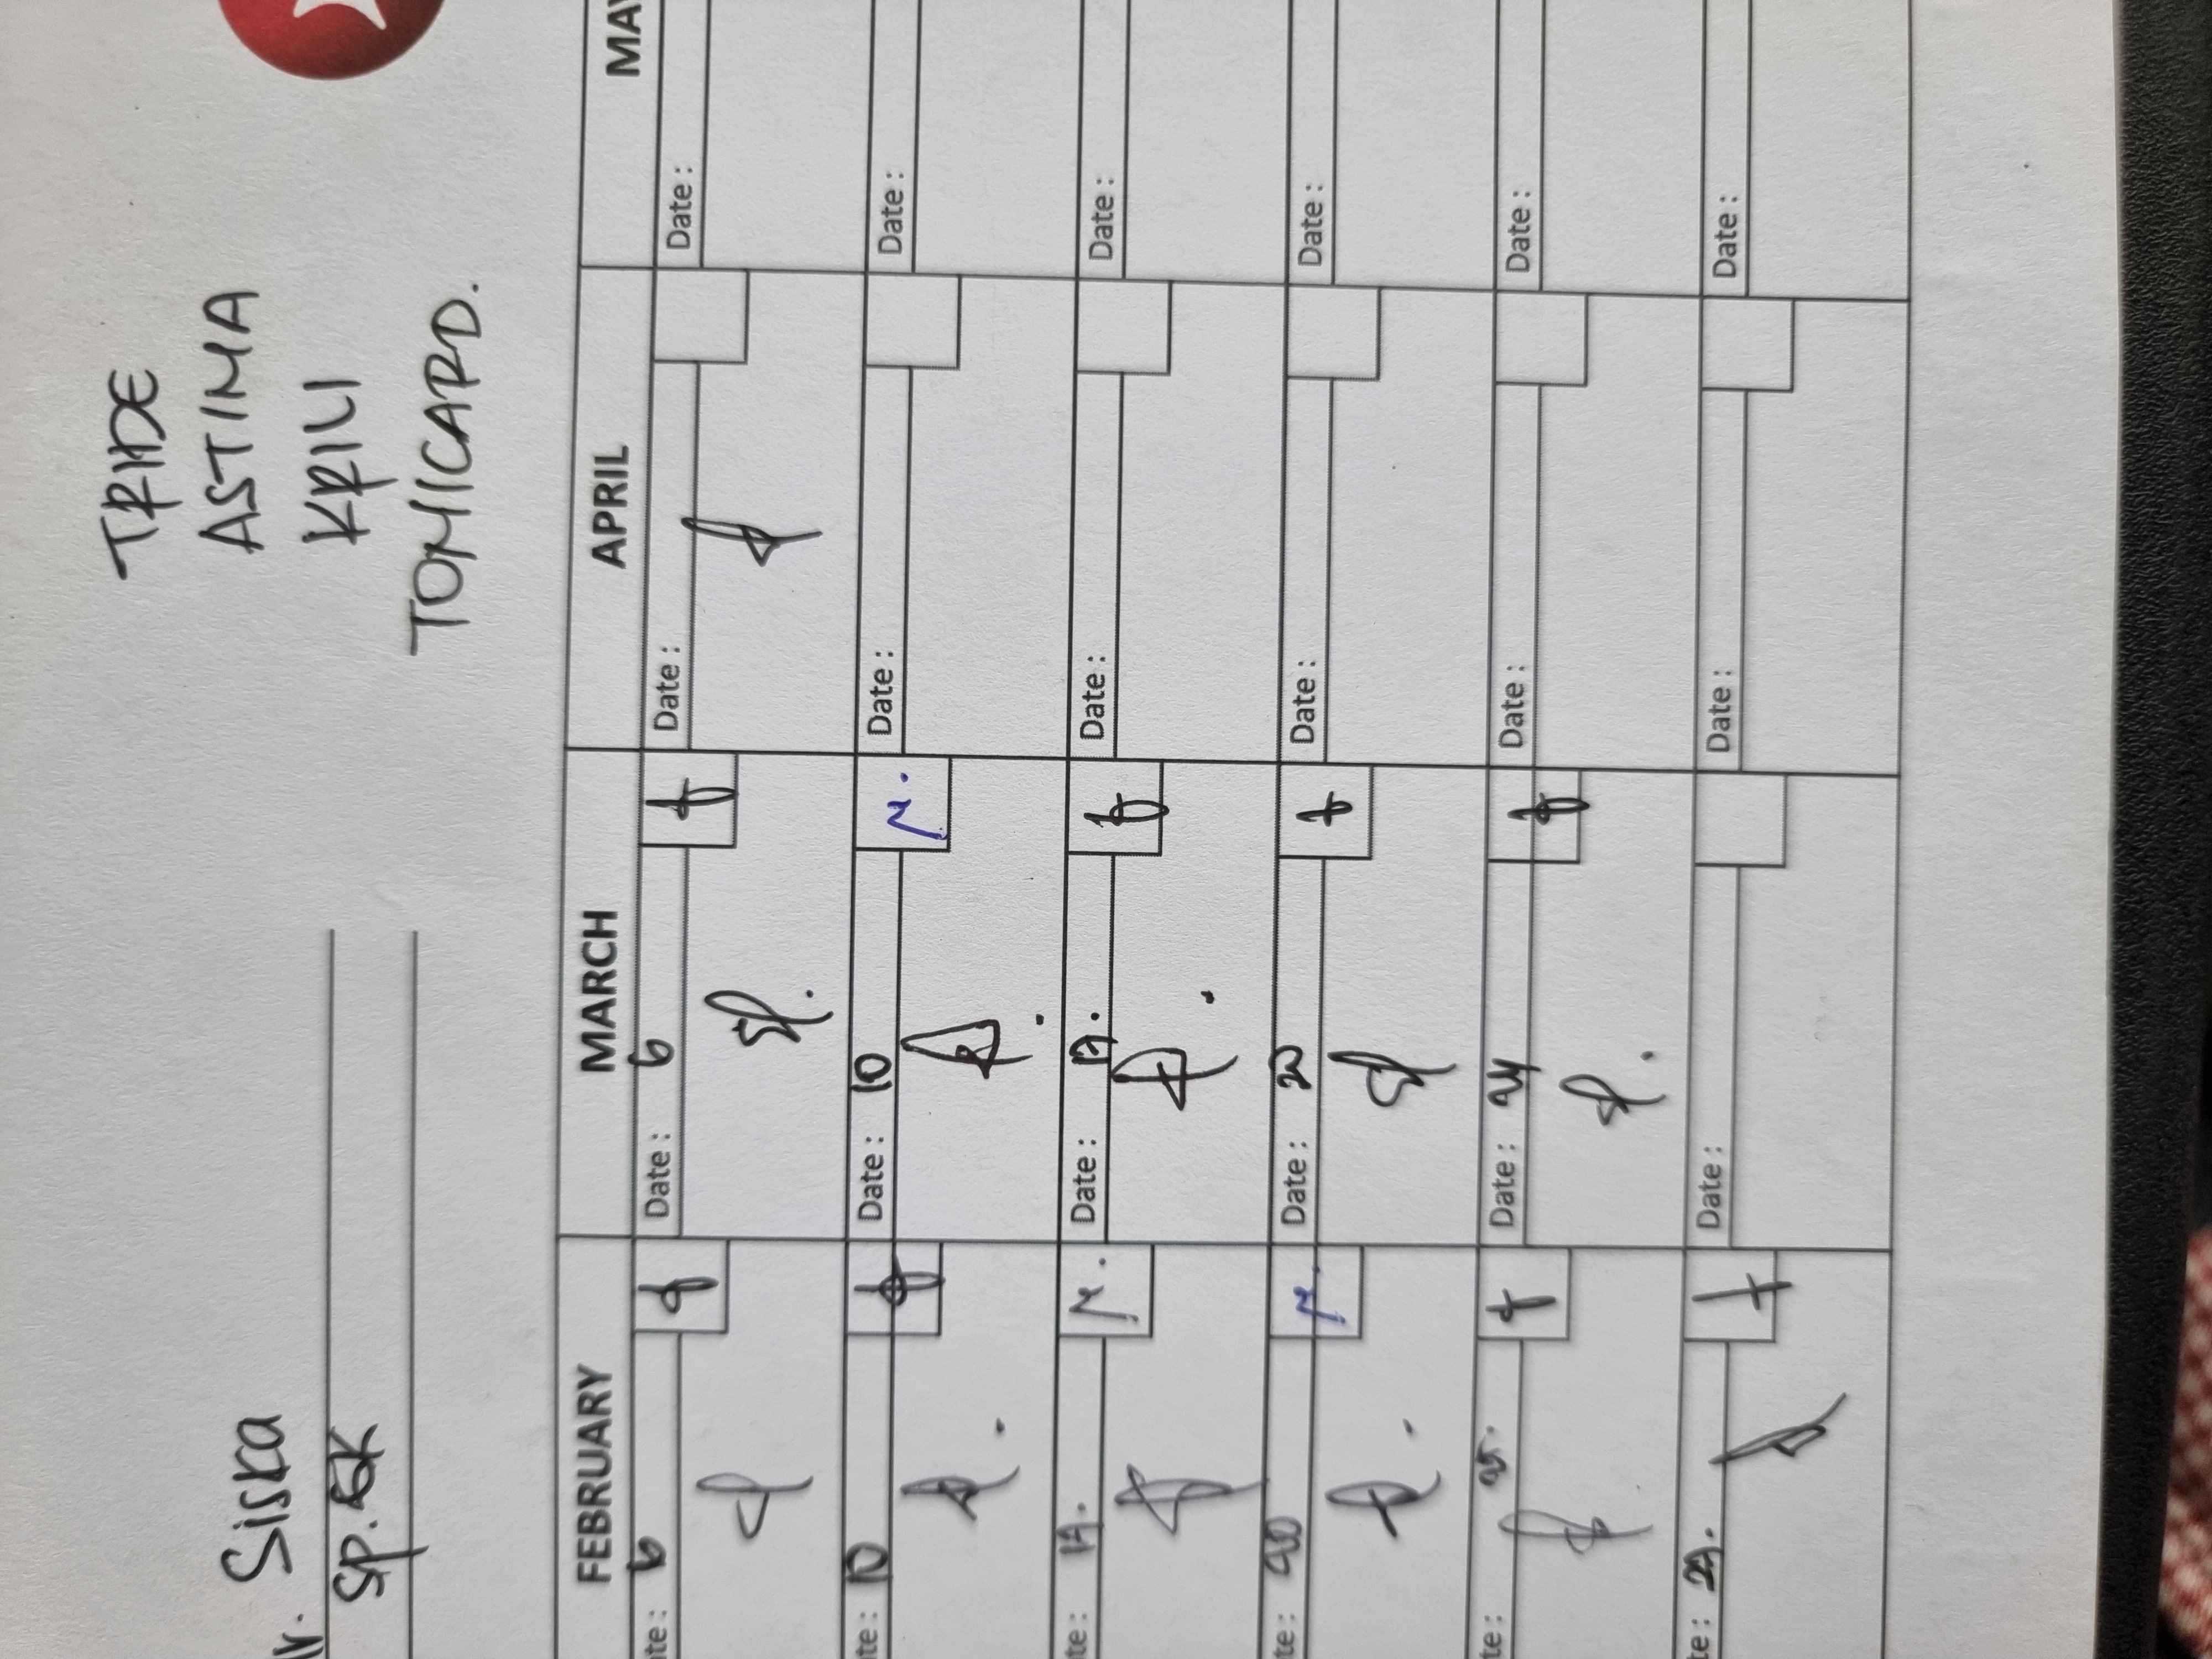 Siska
SP.GK
TRIDE
ASTIMA
KRILI
TOMICARD.
FEBRUARY MARCH APRIL MAY
te: 6 Date: 6 Date: Date:
te: 10 Date: 10 Date: Date:
te: 17. Date: 17. Date: Date:
te: 20 Date: 20 Date: Date:
te: 25. Date: 24 Date: Date:
te: 27. Date: Date: Date: